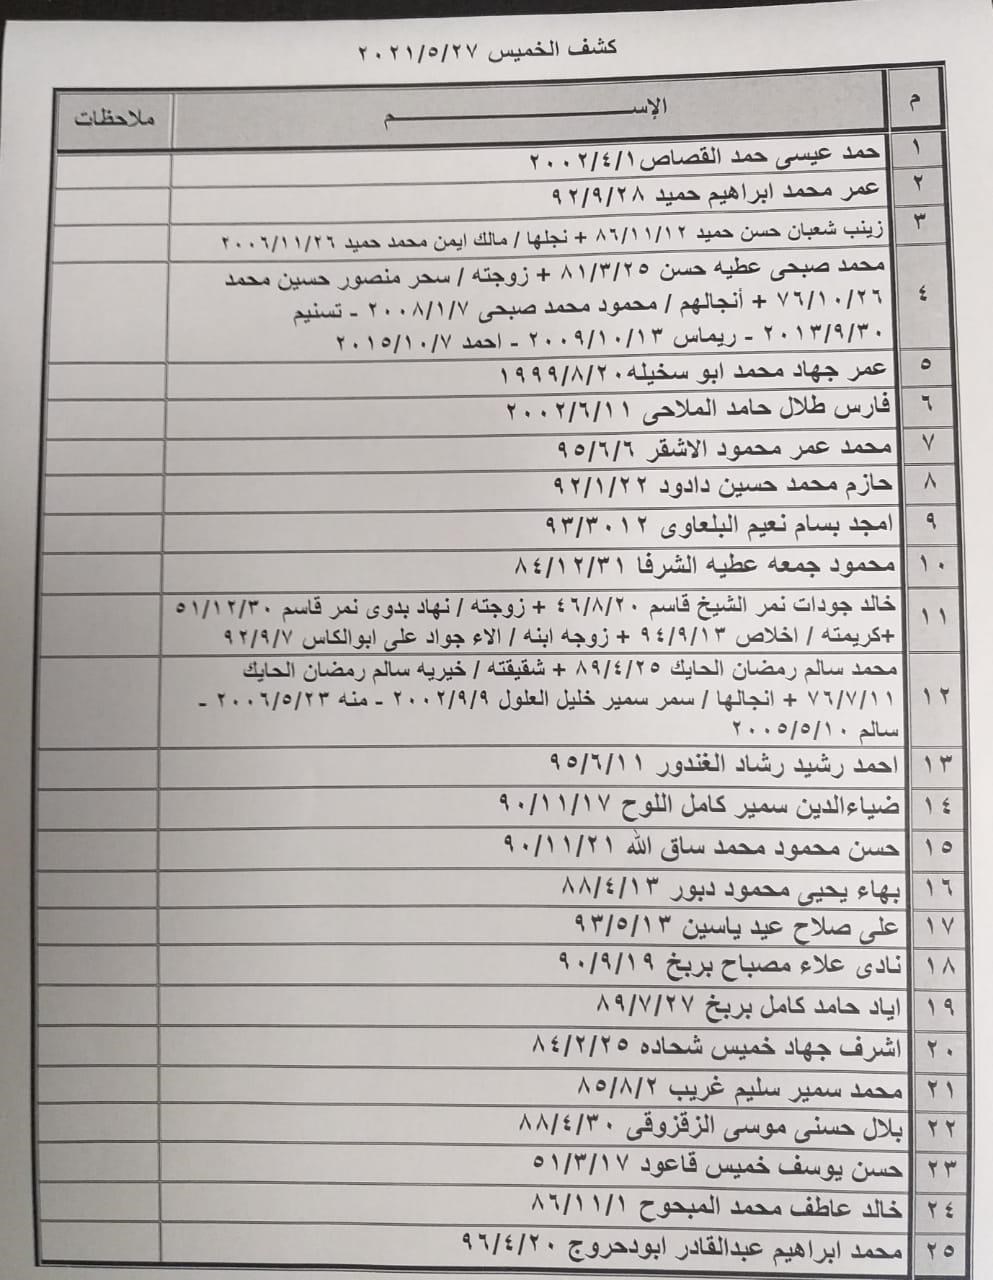 كشف الخميس ٢٠٢١/٥/٢٧
م الإســـــــــــــــم ملاحظات
١ حمد عيسى حمد القصاص ٢٠٠٢/٤/١
٢ عمر محمد ابراهيم حميد ٩٢/٩/٢٨
٣ زينب شعبان حسن حميد ٨٦/١١/١٢ + نجلها / مالك ايمن محمد حميد ٢٠٠٦/١١/٢٦
٤ محمد صبحى عطيه حسن ٨١/٣/٢٥ + زوجته / سحر منصور حسين محمد
٧٦/١٠/٢٦ + أنجالهم / محمود محمد صبحى ٢٠٠٨/١/٧ - تسنيم
٢٠١٣/٩/٣٠ - ريماس ٢٠٠٩/١٠/١٣ - احمد ٢٠١٥/١٠/٧
٥ عمر جهاد محمد ابو سخيله ١٩٩٩/٨/٢٠
٦ فارس طلال حامد الملاحى ٢٠٠٢/٦/١١
٧ محمد عمر محمود الاشقر ٩٥/٦/٦
٨ حازم محمد حسين دادود ٩٢/١/٢٢
٩ امجد بسام نعيم البلعاوى ٩٣/٣٠١٢
١٠ محمود جمعه عطيه الشرفا ٨٤/١٢/٣١
١١ خالد جودات نمر الشيخ قاسم ٤٦/٨/٢٠ + زوجته / نهاد بدوى نمر قاسم ٥١/١٢/٣٠
+كريمته / اخلاص ٩٤/٩/١٣ + زوجه ابنه / الاء جواد على ابوالكاس ٩٢/٩/٧
١٢ محمد سالم رمضان الحايك ٨٩/٤/٢٥ + شقيقته / خيريه سالم رمضان الحايك
٧٦/٧/١١ + انجالها / سمر سمير خليل العلول ٢٠٠٢/٩/٩ - منه ٢٠٠٦/٥/٢٣ -
سالم ٢٠٠٥/٥/١٠
١٣ احمد رشيد رشاد الغندور ٩٥/٦/١١
١٤ ضياءالدين سمير كامل اللوح ٩٠/١١/١٧
١٥ حسن محمود محمد ساق الله ٩٠/١١/٢١
١٦ بهاء يحيى محمود دبور ٨٨/٤/١٣
١٧ على صلاح عيد ياسين ٩٣/٥/١٣
١٨ نادى علاء مصباح بربخ ٩٠/٩/١٩
١٩ اياد حامد كامل بربخ ٨٩/٧/٢٧
٢٠ اشرف جهاد خميس شحاده ٨٤/٢/٢٥
٢١ محمد سمير سليم غريب ٨٥/٨/٢
٢٢ بلال حسنى موسى الزقزوقى ٨٨/٤/٣٠
٢٣ حسن يوسف خميس قاعود ٥١/٣/١٧
٢٤ خالد عاطف محمد المبحوح ٨٦/١١/١
٢٥ محمد ابراهيم عبدالقادر ابودحروج ٩٦/٤/٢٠